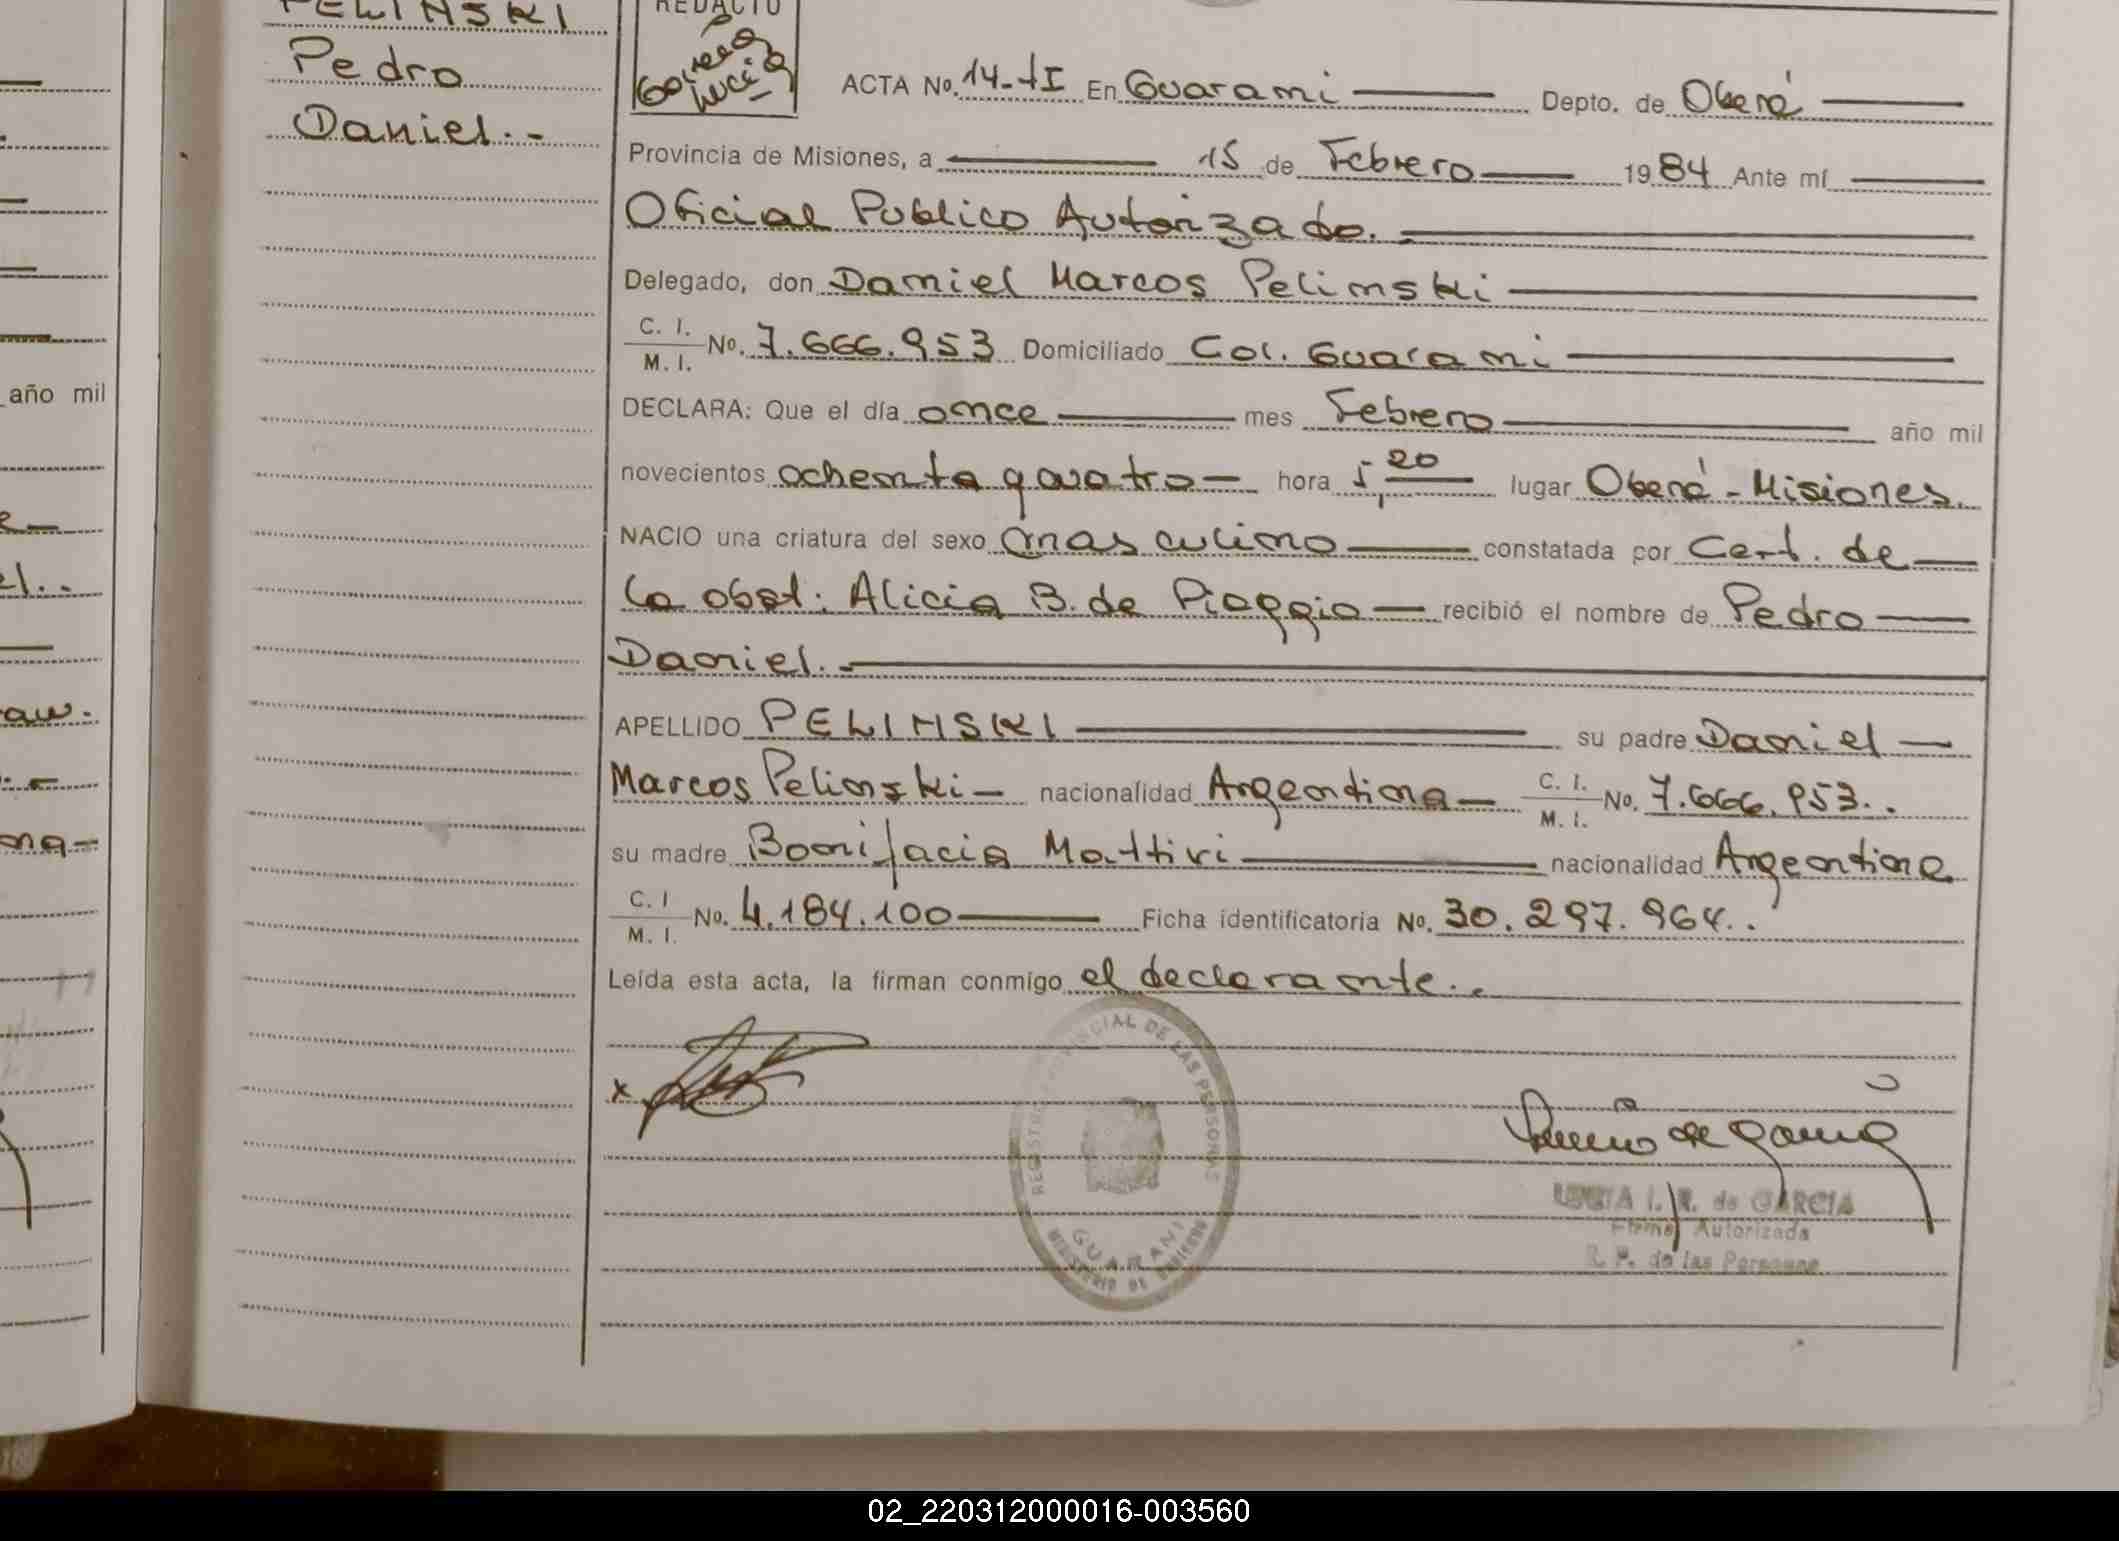 PELINSKI
Pedro
Daniel.-
REDACTO
ACTA No. 14-tI En Guarani Depto. de Oberá
Provincia de Misiones, a 15 de Febrero 1984 Ante mí
Oficial Publico Autorizado.
Delegado, don Daniel Marcos Pelinski
C. I. / M. I. No. 7.666.953 Domiciliado Col. Guarani
DECLARA: Que el día once mes Febrero año mil
novecientos ochenta y cuatro hora 5,20 lugar Oberá - Misiones.
NACIO una criatura del sexo masculino constatada por Cert. de
la obst. Alicia B. de Pioggio recibió el nombre de Pedro
Daniel.-
APELLIDO PELINSKI su padre Daniel
Marcos Pelinski nacionalidad Argentina C. I. / M. I. No. 7.666.953..
su madre Bonifacia Mattivi nacionalidad Argentina
C. I / M. I. No. 4.184.100 Ficha identificatoria No. 30.297.964..
Leída esta acta, la firman conmigo el declarante..
x
REGISTRO PROVINCIAL DE LAS PERSONAS
GUARANI
MINISTERIO DE GOBIERNO
LUCIA I. R. de GARCIA
Firma Autorizada
R. P. de las Personas
año mil
02_220312000016-003560